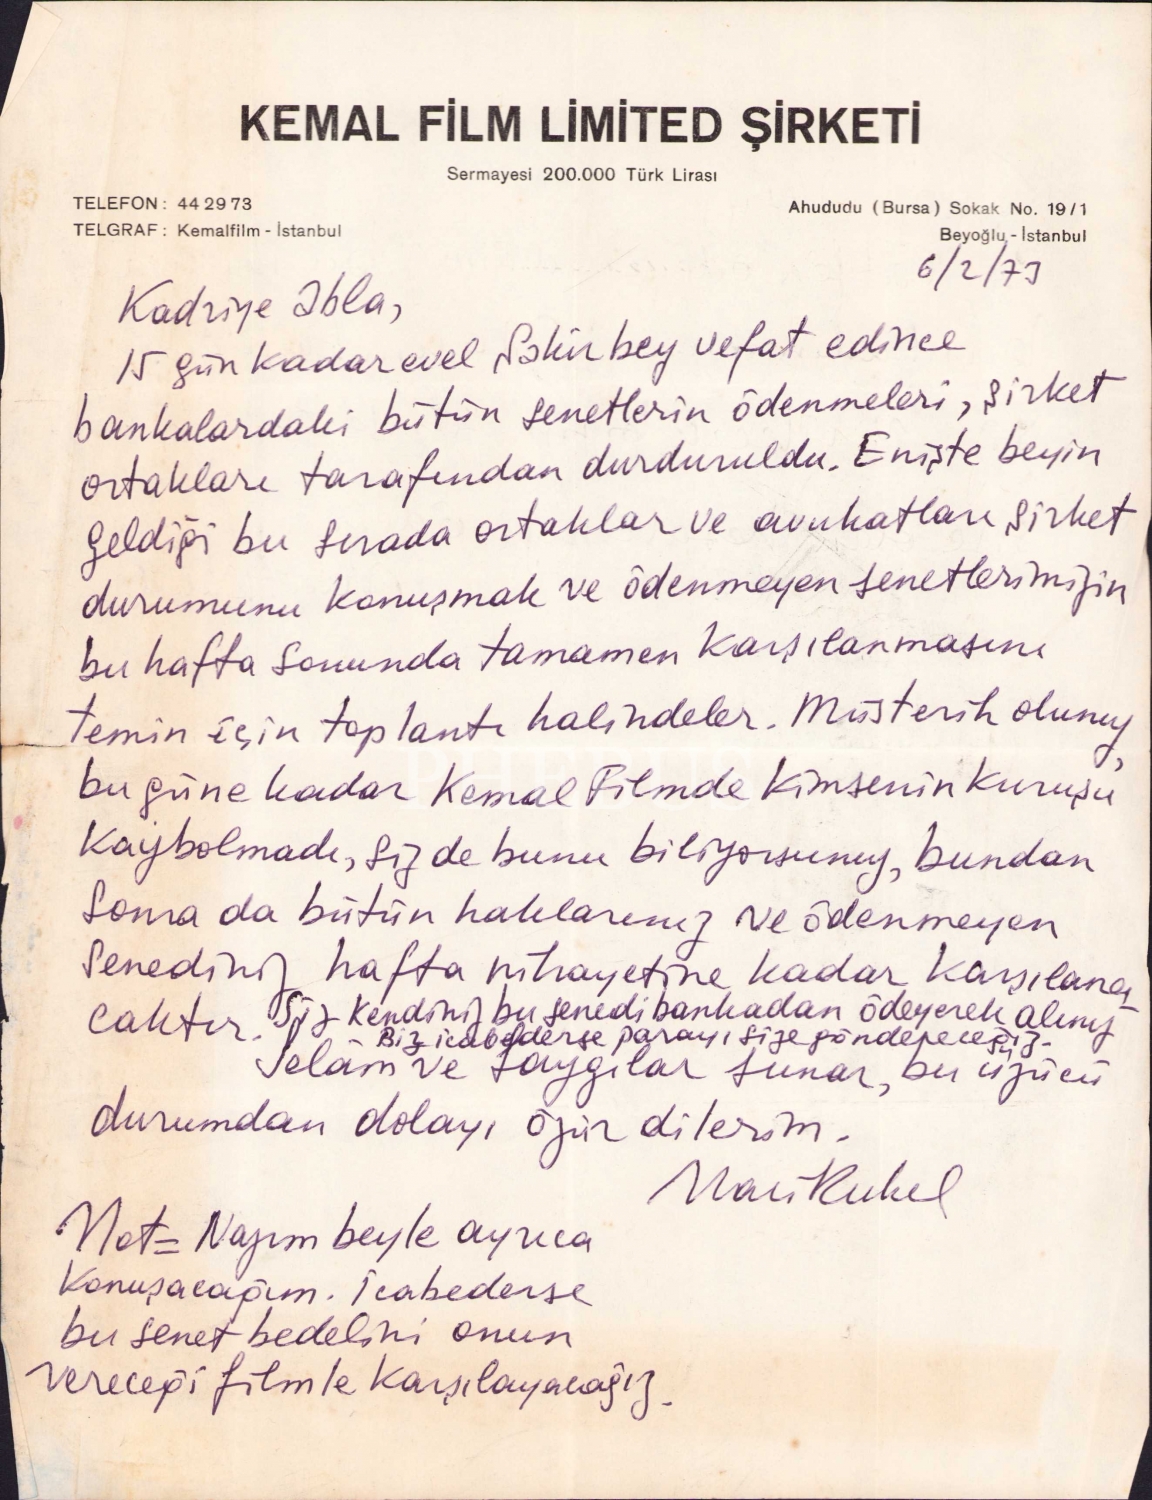 KEMAL FİLM LİMİTED ŞİRKETİ
Sermayesi 200.000 Türk Lirası
TELEFON : 44 29 73
TELGRAF : Kemalfilm - İstanbul
Ahududu ( Bursa ) Sokak No. 19/1
Beyoğlu - İstanbul
6/2/73
Kadriye Abla,
15 gün kadar evel Şakir bey vefat edince
bankalardaki bütün senetlerin ödenmeleri, şirket
ortakları tarafından durduruldu. Enişte beyin
geldiği bu sırada ortaklar ve avukatları şirket
durumunu konuşmak ve ödenmeyen senetlerimizin
bu hafta sonunda tamamen karşılanmasını
temin için toplantı halindeler. Müsterih olunuz,
bu güne kadar Kemal Filmde kimsenin kuruşu
kaybolmadı, siz de bunu biliyorsunuz, bundan
sonra da bütün haklarınız ve ödenmeyen
senediniz hafta nihayetine kadar karşılana-
caktır. Siz kendiniz bu senedi bankadan ödeyerek alınız
Biz icabederse parayı size göndereceğiz.
Selâm ve saygılar sunar, bu üzücü
durumdan dolayı özür dilerim.
Not= Nazım beyle ayrıca
konuşacağım. İcabederse
bu senet bedelini onun
vereceği filmle karşılayacağız.